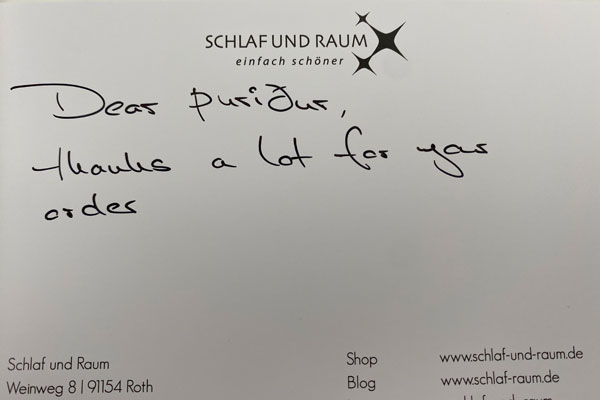 SCHLAF UND RAUM
einfach schöner
Dear Puriður,
thanks a lot for your
order
Schlaf und Raum
Weinweg 8 | 91154 Roth
Shop www.schlaf-und-raum.de
Blog www.schlaf-raum.de